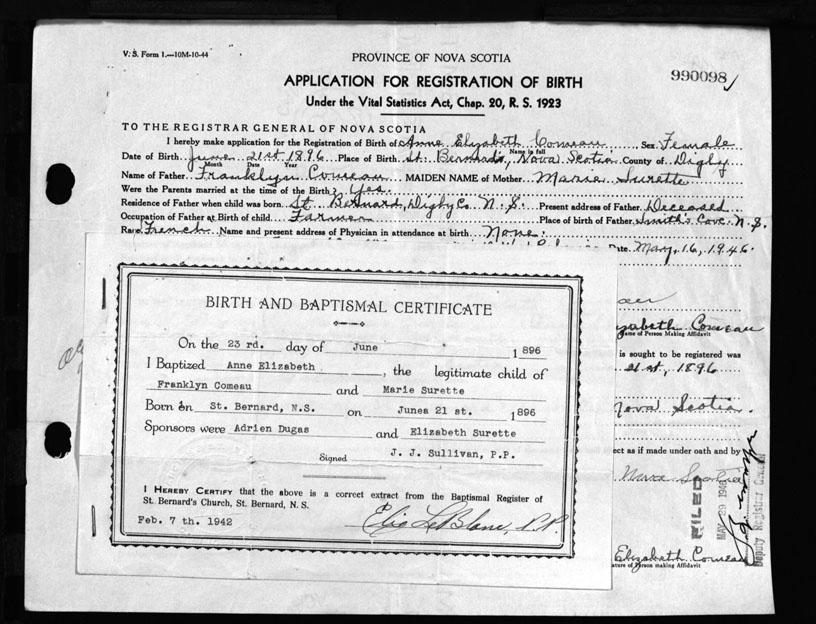 V. S. Form 1.—10M-10-44
PROVINCE OF NOVA SCOTIA
990098
APPLICATION FOR REGISTRATION OF BIRTH
Under the Vital Statistics Act, Chap. 20, R. S. 1923
TO THE REGISTRAR GENERAL OF NOVA SCOTIA
I hereby make application for the Registration of Birth of Anne Elizabeth Comeau Sex Female
Name in full
Date of Birth June 21st 1896 Place of Birth St. Bernard, Nova Scotia County of Digby
Month Date Year
Name of Father Franklyn Comeau MAIDEN NAME of Mother Marie Surette
Were the Parents married at the time of the Birth? Yes.
Residence of Father when child was born St. Bernard, Digby Co. N. S. Present address of Father Deceased
Occupation of Father at Birth of child Farmer Place of birth of Father Smith's Cove N. S.
Race French Name and present address of Physician in attendance at birth None.
Date May 16, 1946
BIRTH AND BAPTISMAL CERTIFICATE
On the 23 rd. day of June 1896
I Baptized Anne Elizabeth, the legitimate child of
Franklyn Comeau and Marie Surette
Born in St. Bernard, N.S. on Junea 21 st. 1896
Sponsors were Adrien Dugas and Elizabeth Surette
Signed J. J. Sullivan, P.P.
I HEREBY CERTIFY that the above is a correct extract from the Baptismal Register of
St. Bernard's Church, St. Bernard, N. S.
Feb. 7 th. 1942 LeBlanc, P.P.
eau
izabeth Comeau
Name of Person Making Affidavit
is sought to be registered was
21st, 1896
Nova Scotia
ect as if made under oath and by
Nova Scotia
FILED
MAY 29 1946
Deputy Registrar General
Elizabeth Comeau
ature of Person making Affidavit